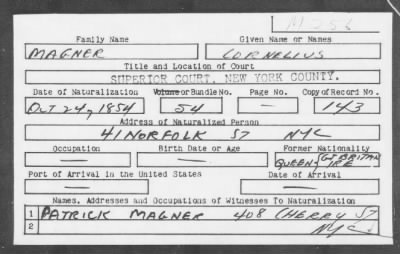 M 256
Family Name Given Name or Names
MAGNER CORNELIUS
Title and Location of Court
SUPERIOR COURT, NEW YORK COUNTY.
Date of Naturalization Volume or Bundle No. Page No. Copy of Record No.
Oct 24, 1854 54 — 143
Address of Naturalized Person
41 NORFOLK ST NYC
Occupation Birth Date or Age Former Nationality
— — QUEEN, GT BRITAN IRE
Port of Arrival in the United States Date of Arrival
— —
Names, Addresses and Occupations of Witnesses To Naturalization
1 PATRICK MAGNER 408 CHERRY ST
2 NYC